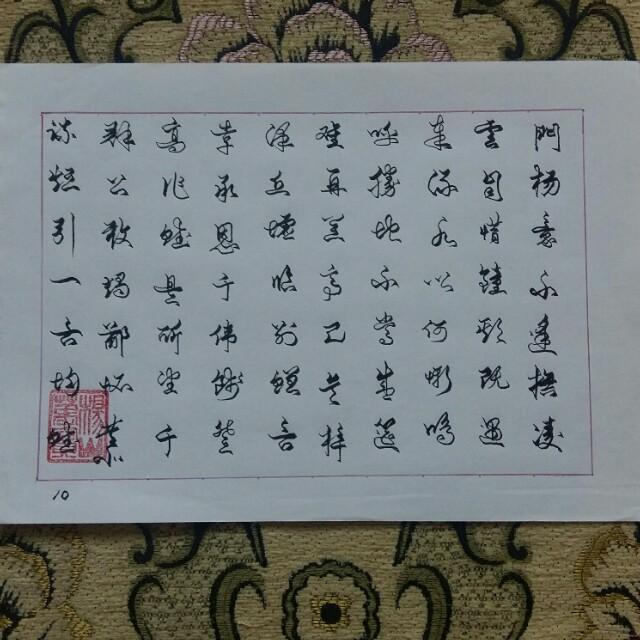 門楊意不逢撫凌
雲自惜鍾期既遇
奏流水以何慚鳴
呼勝地不常盛筵
難再蘭亭已矣梓
澤丘墟臨別贈言
幸承恩于偉餞登
高作賦是所望于
群公敢竭鄙懷恭
疏短引一言均賦
10